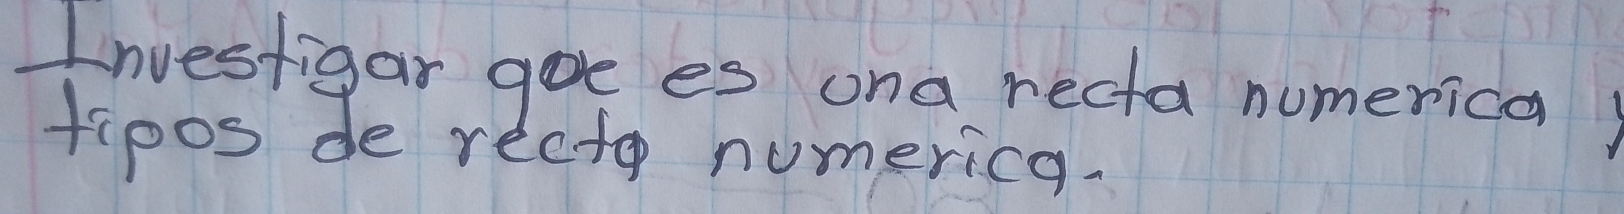 Investigar que es una recta numerica y
tipos de recta numerica.